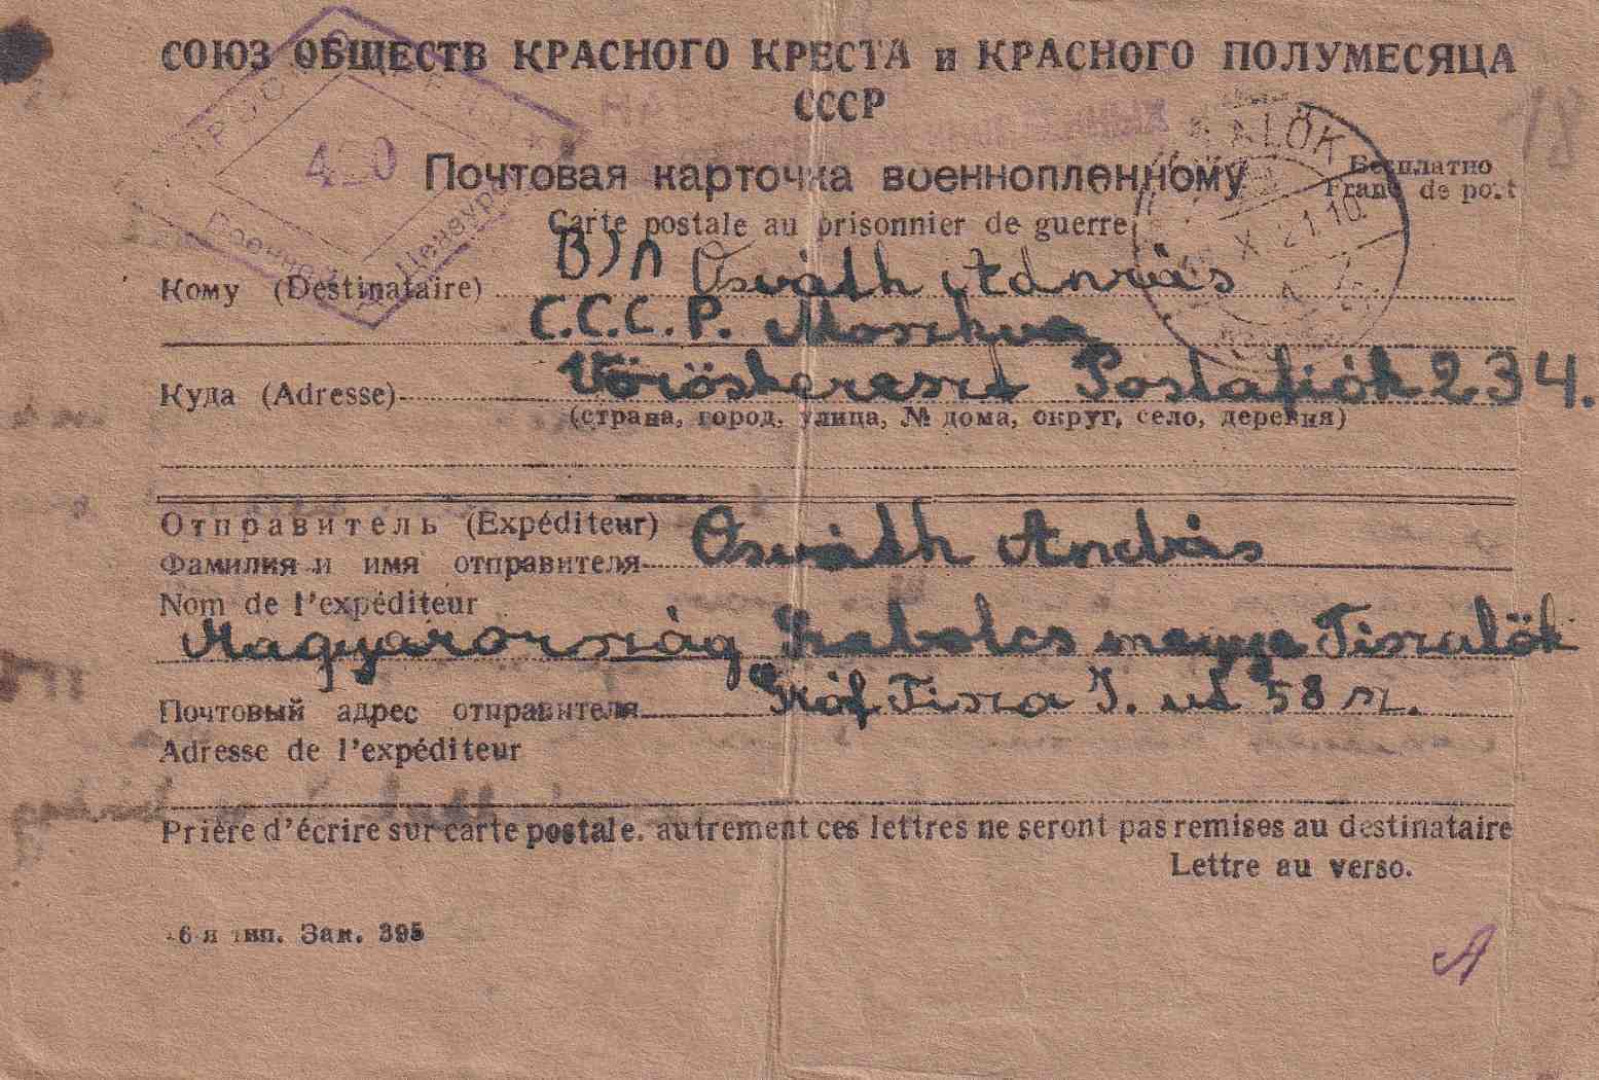 СОЮЗ ОБЩЕСТВ КРАСНОГО КРЕСТА и КРАСНОГО ПОЛУМЕСЯЦА
СССР
420
Почтовая карточка военнопленному
Бесплатно
Franc de port
Carte postale au prisonnier de guerre
Кому (Destinataire)
В/П Osváth András
С.С.С.Р. Moszkva
Куда (Adresse)
Vöröskereszt Postafiók 234.
(страна, город, улица, № дома, округ, село, деревня)
Отправитель (Expéditeur)
Фамилия и имя отправителя
Osváth András
Nom de l'expéditeur
Magyarország Szabolcs megye Tiszalök
Почтовый адрес отправителя
Gróf Tisza I. ut 58 sz.
Adresse de l'expéditeur
Prière d'écrire sur carte postale. autrement ces lettres ne seront pas remises au destinataire
Lettre au verso.
6-я тип. Зак. 395
A